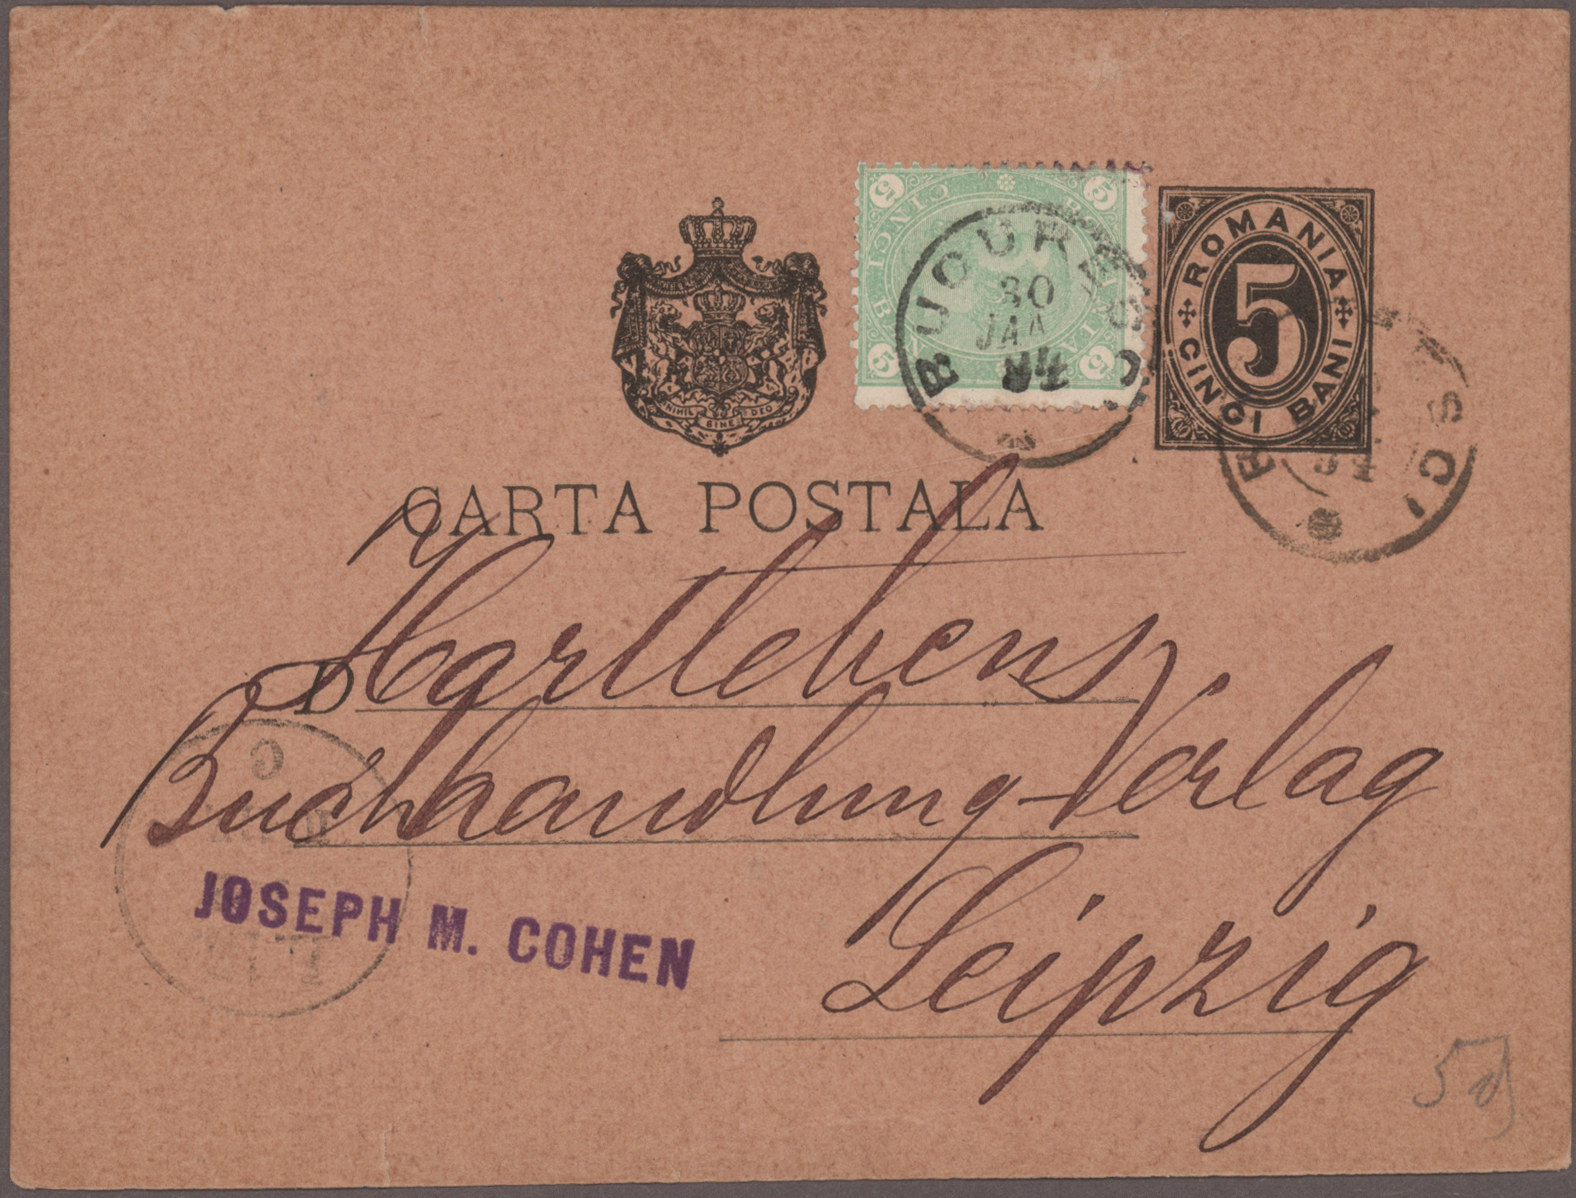 ROMANIA
5
CINCI BANI
5 5 5 5
CINCI B
BUCURESCI
30
JAN
94
NIHIL SINE DEO
CARTA POSTALA
D
Hartlebens
Buchhandlung-Verlag
JOSEPH M. COHEN
Leipzig